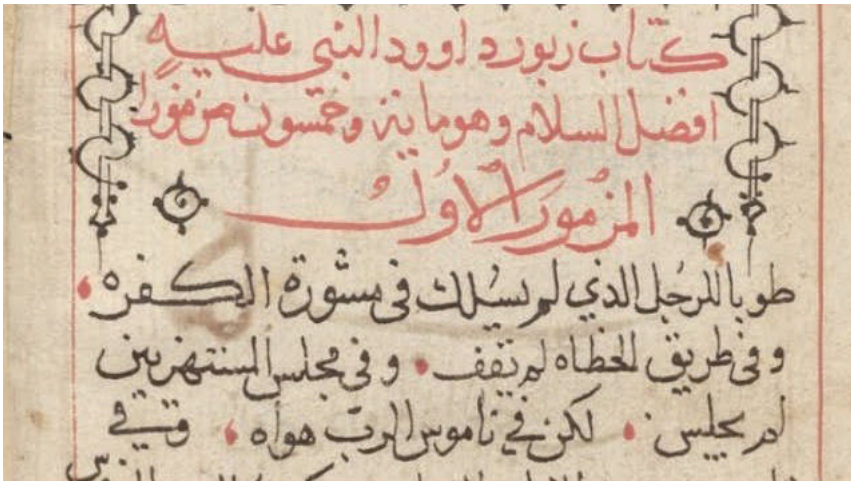 كتاب زبور داوود النبى عليه
افضل السلام وهو ماية وخمسون مزمورا
المزمور الاول
طوبا للرجُل الذي لم يسُلك فى مشورة الكفره
وفى طريق الخطاه لم تقف وفى مجلس المستهزيين
لم يجليس لكن في ناموس الربّ هواه وفي